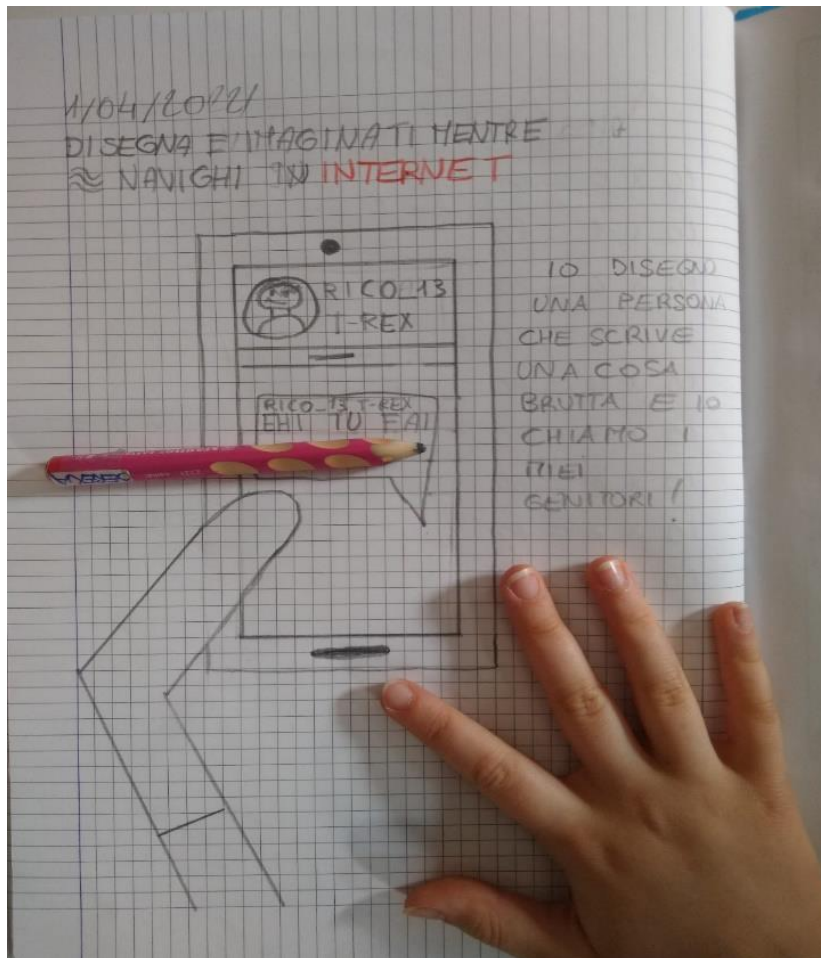 1/04/2022
DISEGNA E IMAGINATI MENTRE
NAVIGHI IN INTERNET
RICO_13
T-REX
RICO_13 T-REX
EHI TU FAI
IO DISEGNO
UNA PERSONA
CHE SCRIVE
UNA COSA
BRUTTA E IO
CHIAMO I
MIEI
GENITORI!